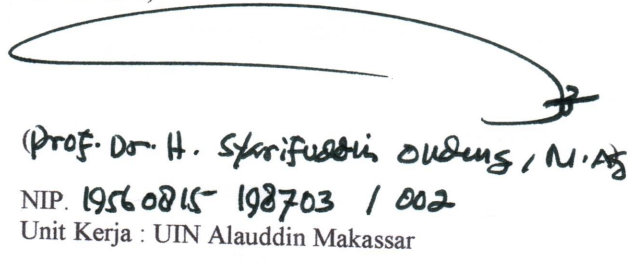 (Prof. Dr. H. Syarifuddin Ondeng, M.Ag
NIP. 19560815 198703 1 002
Unit Kerja : UIN Alauddin Makassar